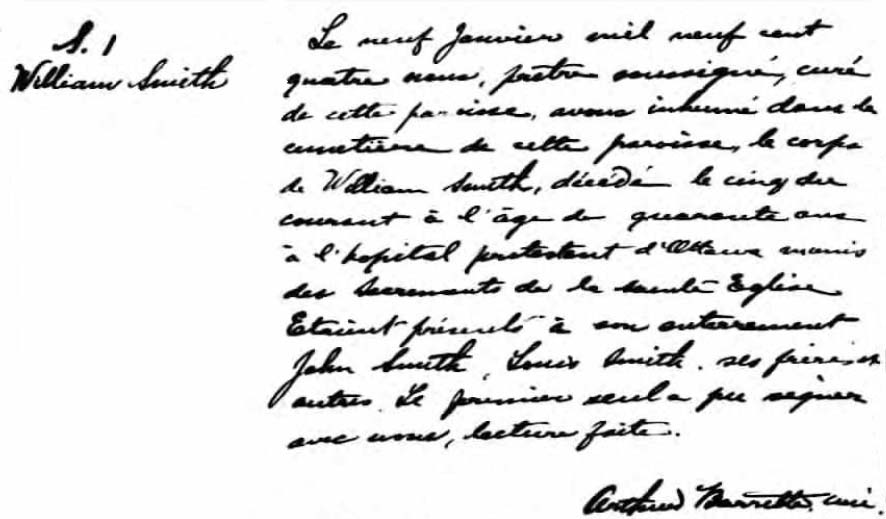 S. 1
William Smith
Le neuf Janvier mil neuf cent
quatre nous, prêtre soussigné, curé
de cette paroisse, avons inhumé dans le
cimetière de cette paroisse, le corps
de William Smith, décédé le cinq du
courant à l'âge de quarante ans
à l'hopital protestant d'Ottawa munis
des Sacrements de la sainte Eglise
Etaient présents à son enterrement
John Smith, Louis Smith, ses frères et
autres. Le premier seul a pu signer
avec nous, lecture faite.
Arthur Barrette, curé.